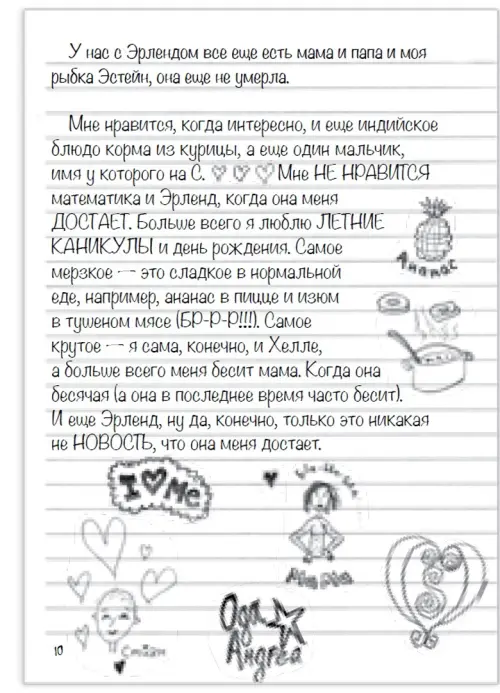 У нас с Эрлендом все еще есть мама и папа и моя
рыбка Эстейн, она еще не умерла.
Мне нравится, когда интересно, и еще индийское
блюдо корма из курицы, а еще один мальчик,
имя у которого на С. ♡ ♡ ♡ Мне НЕ НРАВИТСЯ
математика и Эрленд, когда она меня
ДОСТАЕТ. Больше всего я люблю ЛЕТНИЕ
КАНИКУЛЫ и день рождения. Самое
мерзкое — это сладкое в нормальной
еде, например, ананас в пицце и изюм
в тушеном мясе (БР-Р-Р!!!). Самое
крутое — я сама, конечно, и Хелле,
а больше всего меня бесит мама. Когда она
бесячая (а она в последнее время часто бесит).
И еще Эрленд, ну да, конечно, только это никакая
не НОВОСТЬ, что она меня достает.
Ананас
I ♥ Me
Ода
Андреа
10